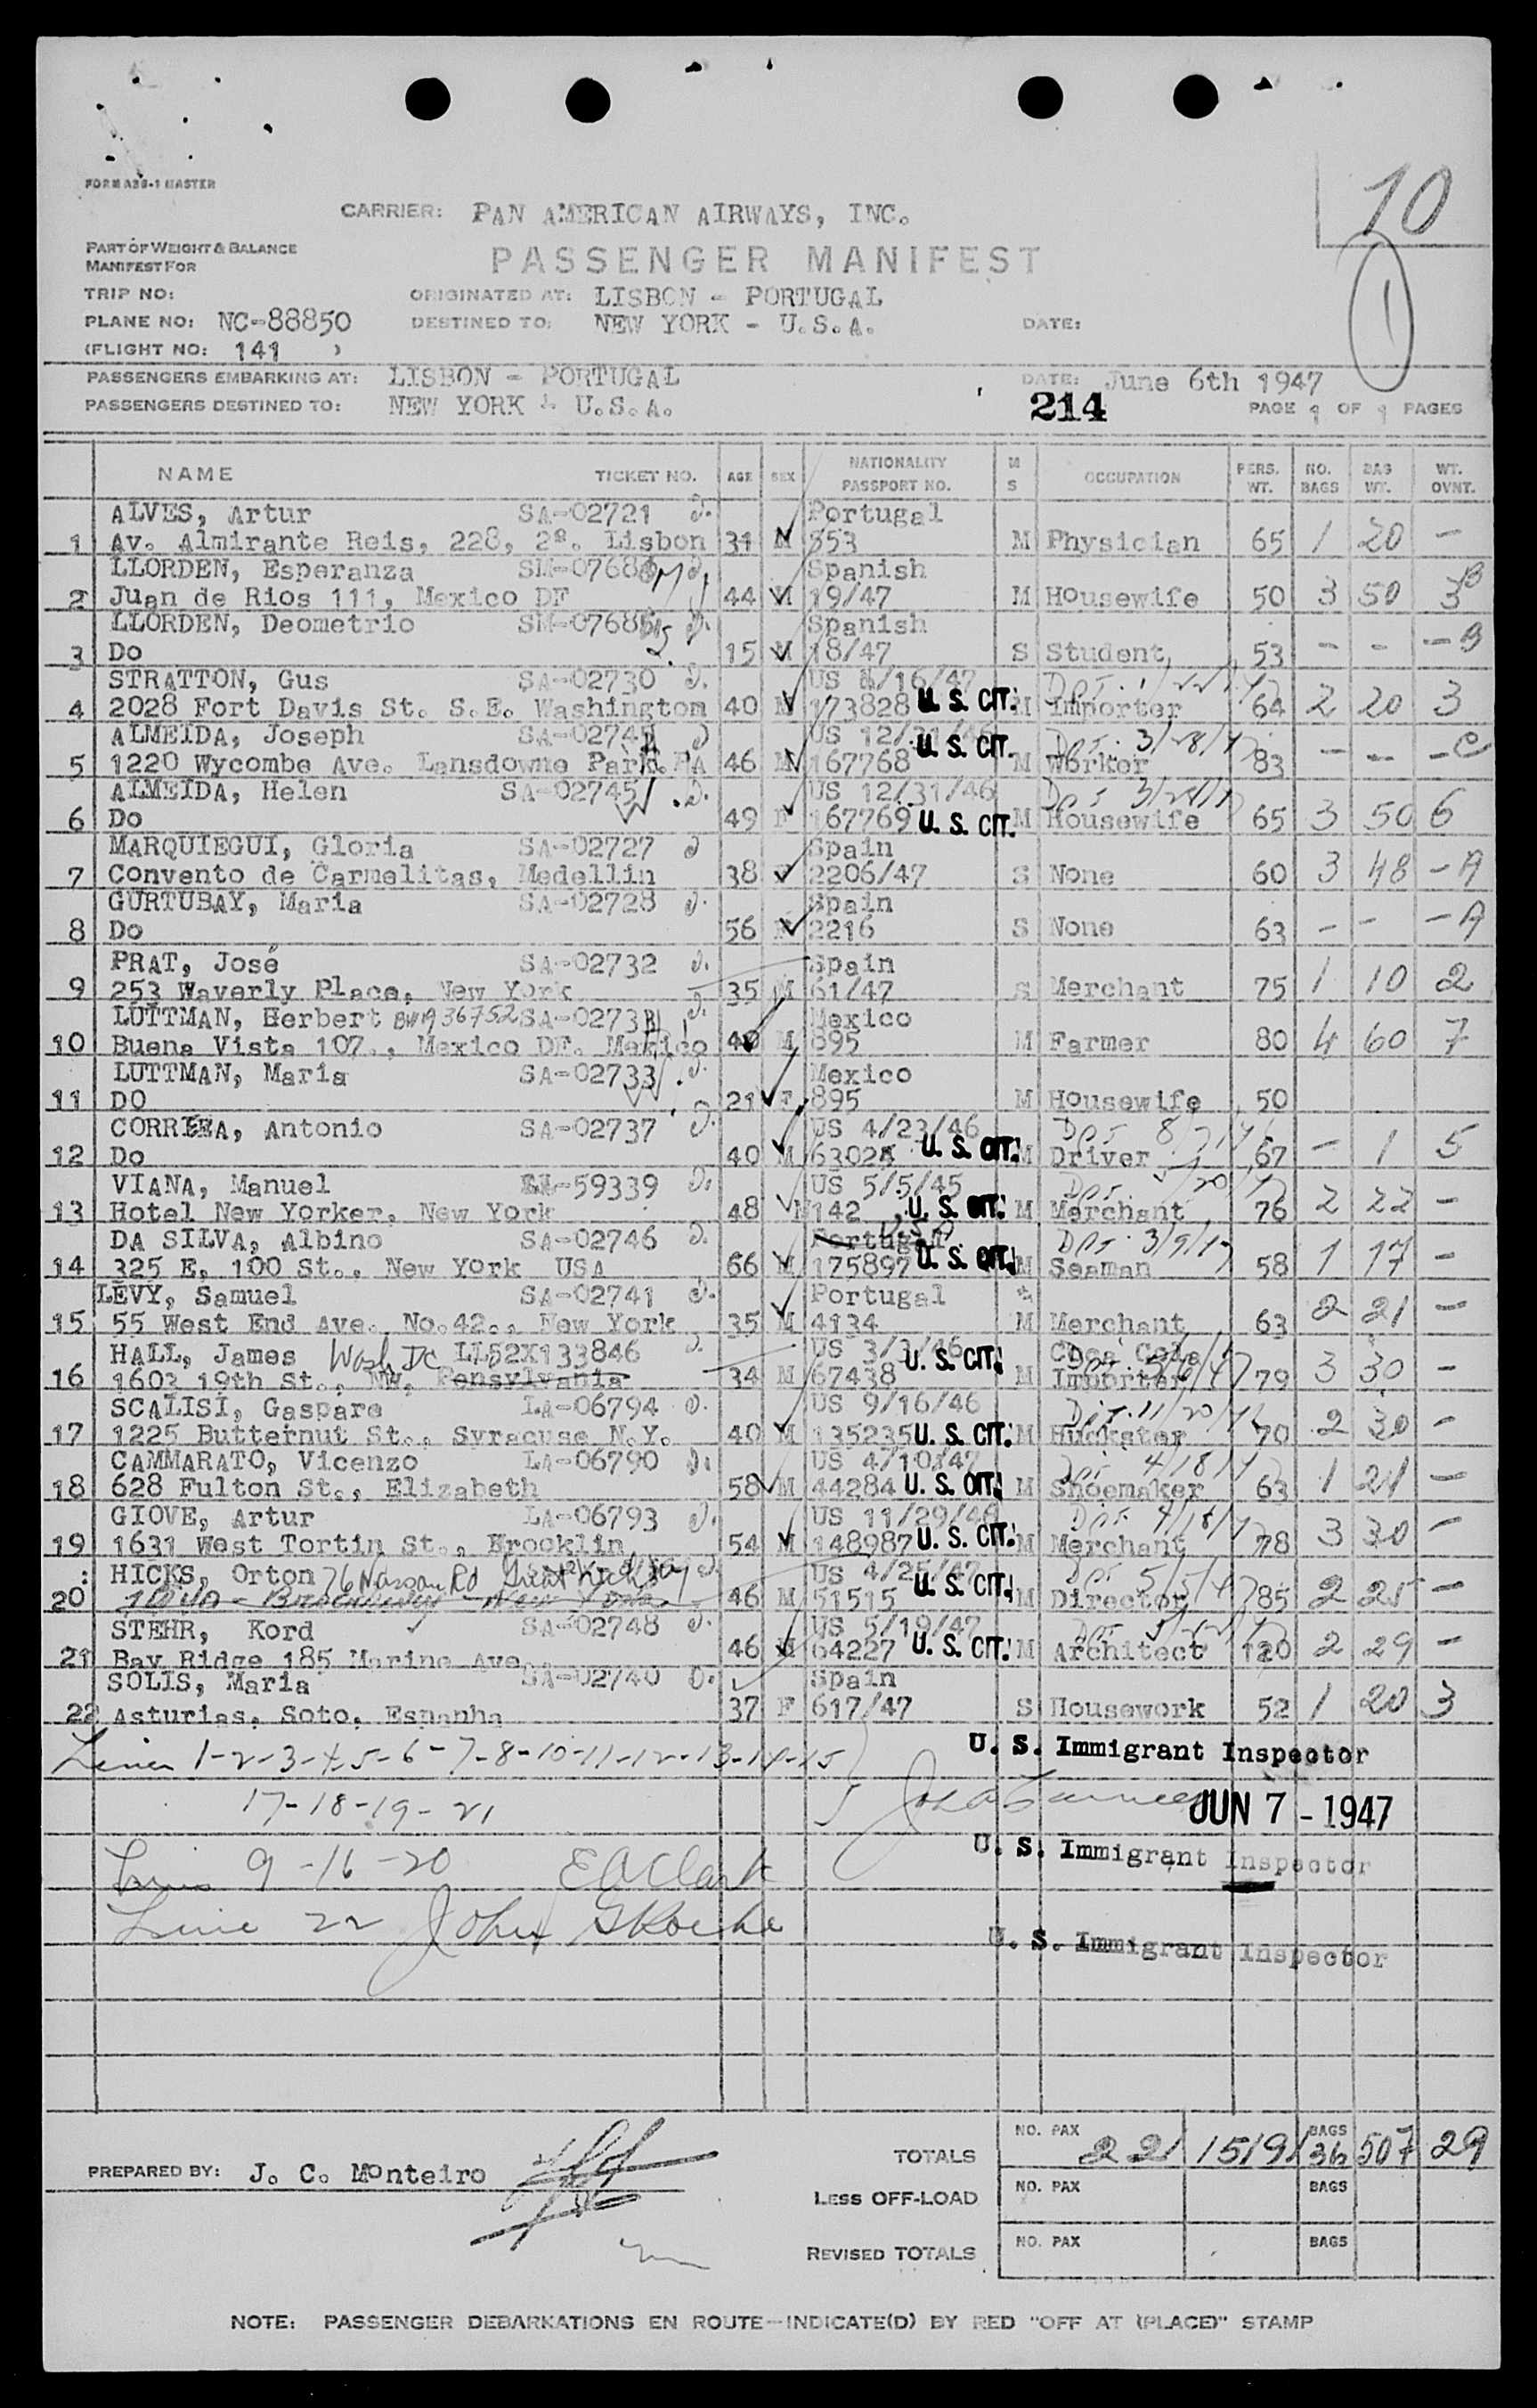 FORM A86-1 MASTER
10
CARRIER: PAN AMERICAN AIRWAYS, INC.
PART OF WEIGHT & BALANCE
MANIFEST FOR
PASSENGER MANIFEST
1
TRIP NO:
ORIGINATED AT: LISBON - PORTUGAL
PLANE NO: NC-88850
DESTINED TO: NEW YORK - U.S.A.
DATE:
(FLIGHT NO: 141 )
PASSENGERS EMBARKING AT: LISBON - PORTUGAL
DATE: June 6th 1947
PASSENGERS DESTINED TO: NEW YORK - U.S.A.
214
PAGE 1 OF 1 PAGES
NAME TICKET NO. AGE SEX NATIONALITY PASSPORT NO. M S OCCUPATION PERS. WT. NO. BAGS BAG WT. WT. OVNT.
ALVES, Artur SA-02721 D. Portugal
1 Av. Almirante Reis, 228, 2º. Lisbon 31 M 553 M Physician 65 1 20 -
LLORDEN, Esperanza Spanish
2 Juan de Rios 111, Mexico DF 44 19/47 M Housewife 50 3 50 3 B
LLORDEN, Deometrio Spanish
3 Do 15 M 18/47 S Student 53 - - - B
STRATTON, Gus SA-02730 D. US
4 2028 Fort Davis St. S.E. Washington 40 M 173828 U. S. CIT. M Importer 64 2 20 3
ALMEIDA, Joseph US 12/31/46 Dpt. 3/28/47
5 1220 Wycombe Ave. Lansdowne Park. PA 46 M 167768 U. S. CIT. M Worker 83 - - - C
ALMEIDA, Helen SA-02745 D. US 12/31/46
6 Do 49 F 167769 U. S. CIT. M Housewife 65 3 50 6
MARQUIEGUI, Gloria SA-02727 D Spain
7 Convento de Carmelitas, Medellin 38 2206/47 S None 60 3 48 - A
GURTUBAY, Maria SA-02728 D. Spain
8 Do 56 F 2216 S None 63 - - - A
PRAT, José SA-02732 D. Spain
9 253 Waverly Place, New York 35 M 61/47 S Merchant 75 1 10 2
LUTTMAN, Herbert BW1936752 SA-02733 D. Mexico
10 Buena Vista 107., Mexico DF. Mexico 40 M 895 M Farmer 80 4 60 7
LUTTMAN, Maria SA-02733 D. Mexico
11 DO 21 F 895 M Housewife 50
CORREEA, Antonio SA-02737 D. US 4/23/46
12 Do 40 M U. S. CIT. M Driver 67 - 1 5
VIANA, Manuel 59339 D. US 5/5/45
13 Hotel New Yorker, New York 48 M 142 U. S. CIT. M Merchant 76 2 22 -
DA SILVA, Albino SA-02746 D. Portugal U.S.A Dpt. 3/9/47
14 325 E, 100 St., New York USA 66 M 175897 U. S. CIT. M Seaman 58 1 17 -
LEVY, Samuel SA-02741 D. Portugal
15 55 West End Ave. No.42., New York 35 M 4134 M Merchant 63 2 21 -
HALL, James Wash DC LL52X133846 D. US 3/3/46 Coca Cola
16 1603 19th St., NW, Pensylvania 34 M 67438 U. S. CIT. M Importer 79 3 30 -
SCALISI, Gaspare LA-06794 D. US 9/16/46
17 1225 Butternut St., Syracuse N.Y. 40 M 135235 U. S. CIT. M Huckster 70 2 30 -
CAMMARATO, Vicenzo LA-06790 D. US 4/10/47 Dpt 4/18/47
18 628 Fulton St., Elizabeth 58 M 44284 U. S. CIT. M Shoemaker 63 1 21 -
GIOVE, Artur LA-06793 D. US 11/29/46 Dpt. 4/18/47
19 1631 West Tortin St., Brocklin 54 M 148987 U. S. CIT. M Merchant 78 3 30 -
HICKS, Orton 76 Nassau Rd Great Neck US 4/25/47 Dpt 5/5/47
20 46 M 51515 U. S. CIT. M Director 85 2 25 -
STEHR, Kord SA-02748 D. US 5/19/47
21 Bay Ridge 185 Marine Ave. 46 M 64227 U. S. CIT. M Architect 120 2 29 -
SOLIS, Maria SA-02740 D. Spain
22 Asturias, Soto, Espanha 37 F 617/47 S Housework 52 1 20 3
Lines 1-2-3-4-5-6-7-8-10-11-12-13-14-15
U. S. Immigrant Inspector
17-18-19-21
JUN 7 - 1947
U. S. Immigrant Inspector
Lines 9-16-20 E A Clark
Line 22 John
U. S. Immigrant Inspector
TOTALS NO. PAX 22 1519 BAGS 36 507 29
PREPARED BY: J. C. Monteiro
LESS OFF-LOAD NO. PAX BAGS
REVISED TOTALS NO. PAX BAGS
NOTE: PASSENGER DEBARKATIONS EN ROUTE—INDICATE(D) BY RED "OFF AT (PLACE)" STAMP